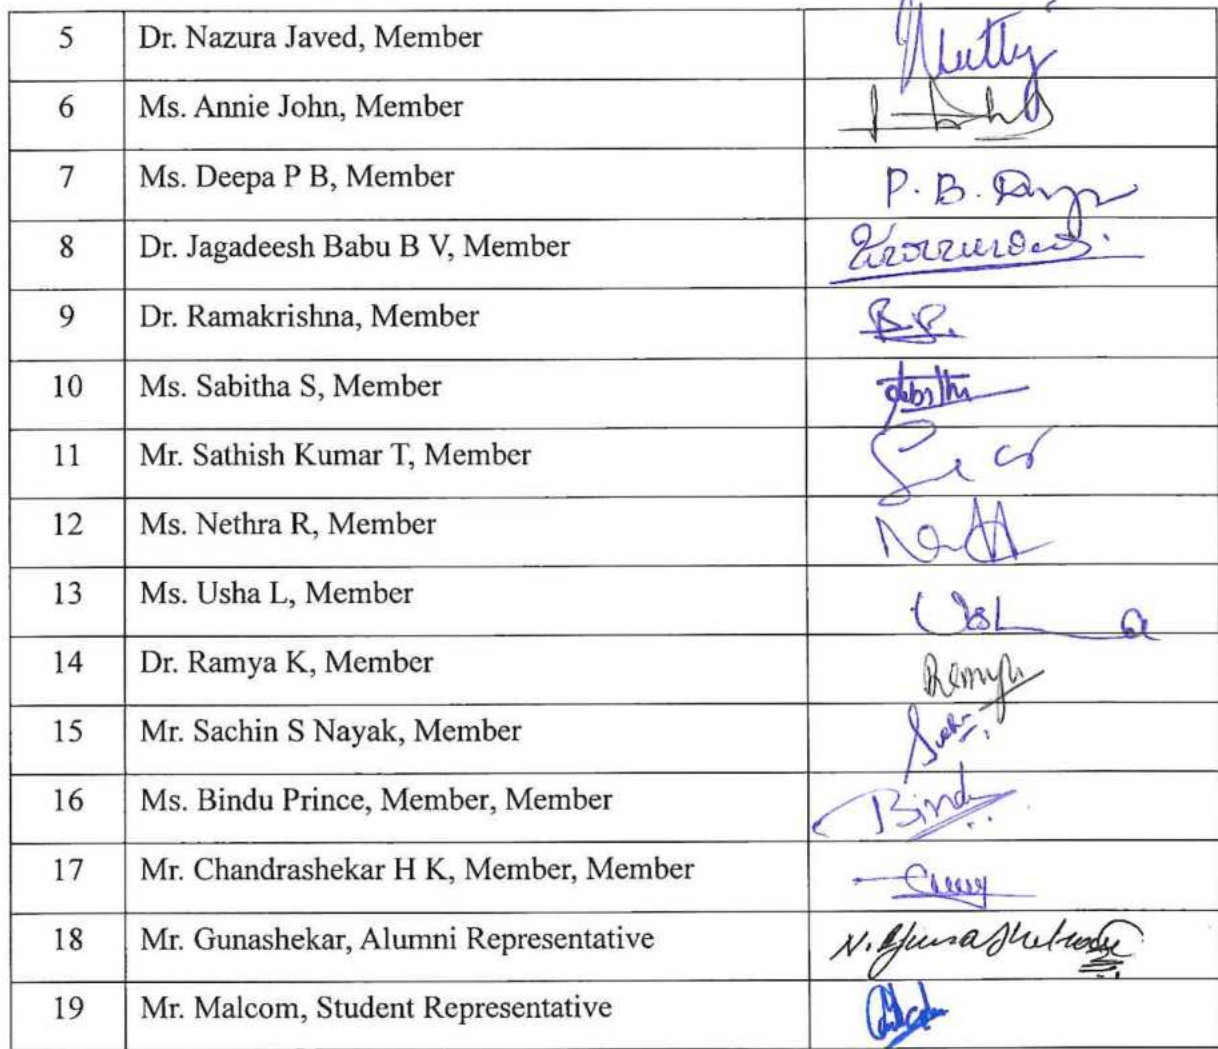 5 Dr. Nazura Javed, Member
6 Ms. Annie John, Member
7 Ms. Deepa P B, Member P. B.
8 Dr. Jagadeesh Babu B V, Member
9 Dr. Ramakrishna, Member
10 Ms. Sabitha S, Member
11 Mr. Sathish Kumar T, Member
12 Ms. Nethra R, Member
13 Ms. Usha L, Member
14 Dr. Ramya K, Member
15 Mr. Sachin S Nayak, Member
16 Ms. Bindu Prince, Member, Member Bindu
17 Mr. Chandrashekar H K, Member, Member
18 Mr. Gunashekar, Alumni Representative
19 Mr. Malcom, Student Representative